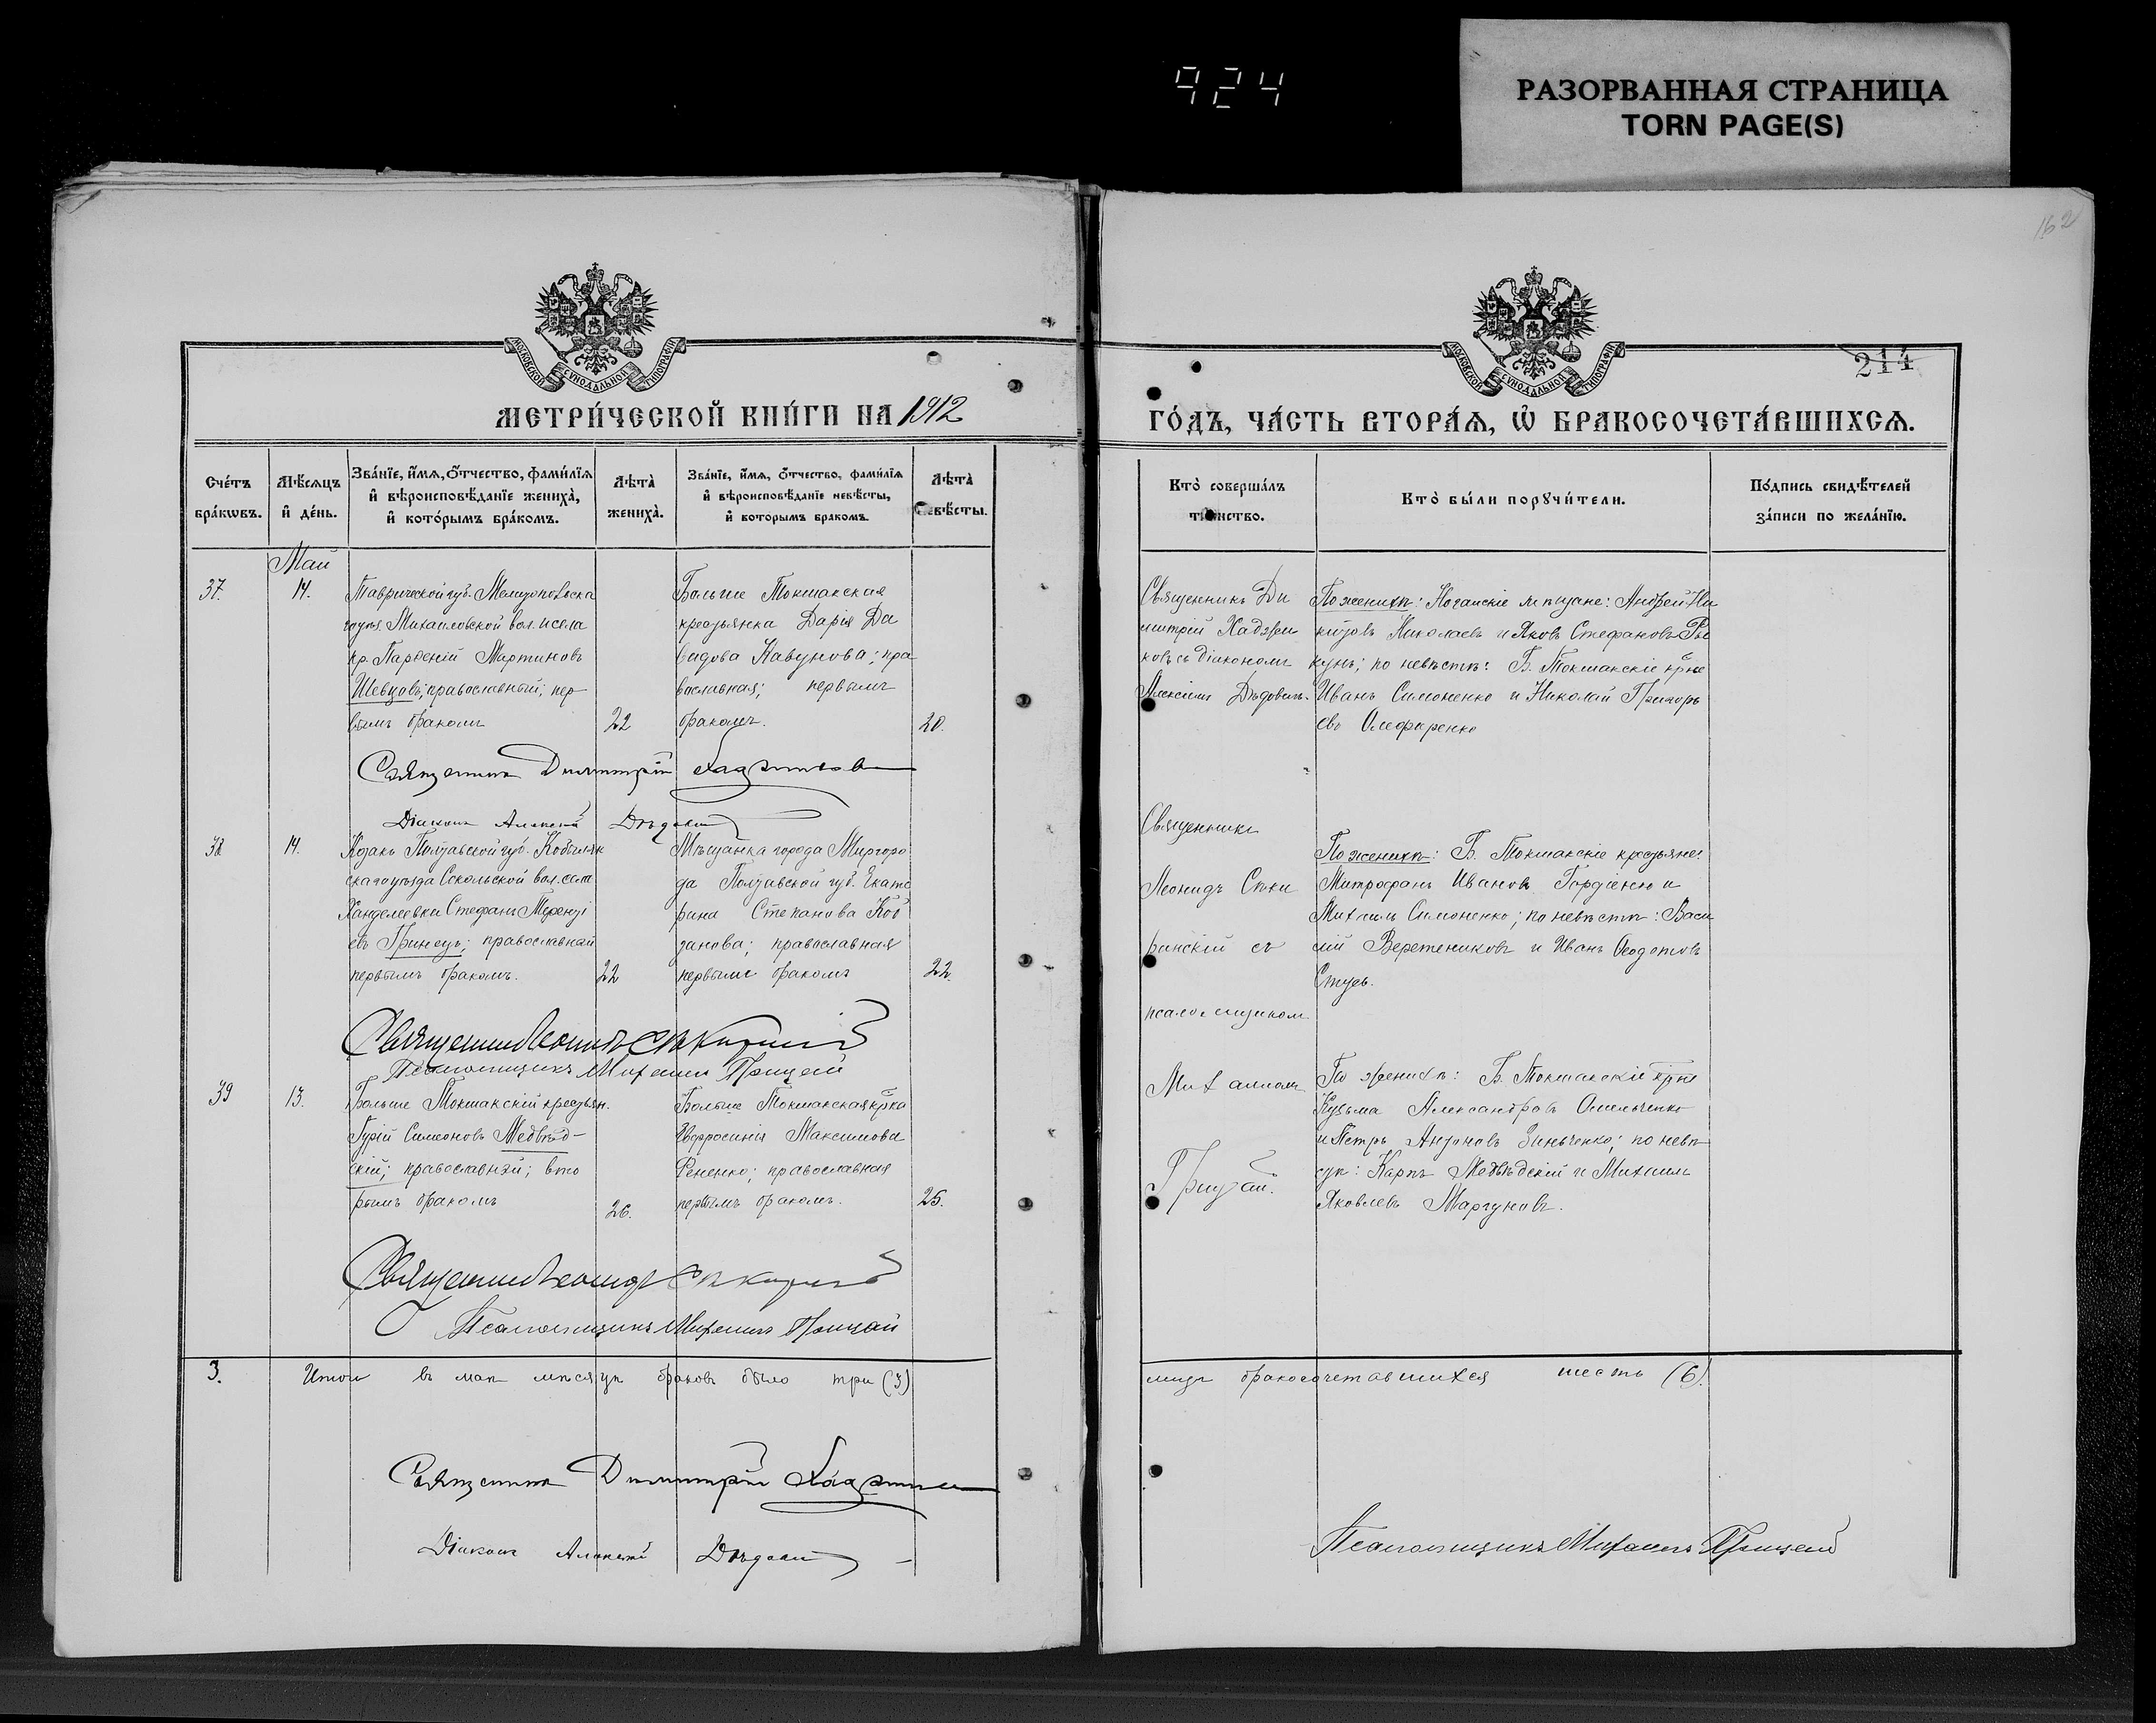 924
РАЗОРВАННАЯ СТРАНИЦА
TORN PAGE(S)
162
214
МОСКОВСКОЙ СѴНОДАЛЬНОЙ ТИПОГРАФІИ
МЕТРИ́ЧЕСКОЙ КНИ́ГИ НА 1912
Сче́тъ бра́кωвъ.
Мѣ́сяцъ и҆ де́нь.
Зва́нїе, и҆́мѧ, ѻ҆́тчество, фами́лїѧ
и҆ вѣроисповѣ́данїе жениха̀,
и҆ кото́рымъ бра́комъ.
Лѣ́та̀ жениха̀.
Зва́нїе, и҆́мѧ, ѻ҆́тчество, фами́лїѧ
и҆ вѣроисповѣ́данїе невѣ́сты,
и҆ которымъ бракомъ.
Лѣ́та̀ невѣ́сты.
Май
37.
14.
Таврической губ. Мелитопольска
го уѣз. Михайловской вол. и села
кр. Парѳеній Мартиновъ
Шевцовъ; православный; пер
вымъ бракомъ
22
Больше Токмакская
крестьянка Дарія Да
видова Кавунова; пра
вославная; первымъ
бракомъ.
20.
Священникъ Димитрій Хаджиновъ
Діаконъ Алексій Дѣдовичъ
38
14.
Козакъ Полтавской губ. Кобеляк
скаго уѣзда Сокольской вол. села
Ханделеевки Стефанъ Теренті
евъ Гринець; православный
первымъ бракомъ.
22
Мѣщанка города Миргоро
да Полтавской губ. Екате
рина Степанова Коб
занова; православная
первымъ бракомъ
22.
Священникъ Леонидъ
Псаломщикъ Михаилъ Грицай
39
13.
Больше Токмакскій крестьян.
Гурій Симеоновъ Медвѣд-
скій; православный; вто
рымъ бракомъ
26.
Больше Токмакская кр-ка
Евфросинія Максимова
Рененко; православная
первымъ бракомъ.
25.
Священникъ Леонидъ
Псаломщикъ Михаилъ Грицай
3.
Итого въ маѣ мѣсяцѣ браковъ было три (3)
Священникъ Димитрій Хаджиновъ
Діаконъ Алексій Дѣдовичъ
МОСКОВСКОЙ СѴНОДАЛЬНОЙ ТИПОГРАФІИ
ГО́ДЪ, ЧА́СТЬ ВТОРА́Ѧ, Ѽ БРАКОСОЧЕТА́ВШИХСѦ.
Кто̀ соверша́лъ
таинство.
Кто̀ бы́ли порꙋчи́тели.
По́дпись свидѣ́телей
за́писи по жела́нїю.
Священникъ Ди
митрій Хаджи
новъ съ діакономъ
Алексіемъ Дѣдовичъ.
По женихѣ: Ногайскіе мѣщане: Андрей Ни
китовъ Николаевъ и Яковъ Стефановъ Ры
кунъ; по невѣстѣ: Б. Токмакскіе кр-не
Иванъ Симоненко и Николай Григорь
евъ Олефиренко
Священникъ
Леонидъ
съ
псаломщикомъ
Михаиломъ
Грицай.
По женихѣ: Б. Токмакскіе крестьяне:
Митрофанъ Ивановъ Гордіенко и
Михаилъ Симоненко; по невѣстѣ: Васи
лій Веретенниковъ и Иванъ Ѳеодотовъ
Стусь.
По женихѣ: Б. Токмакскіе кр-не
Кузьма Александровъ Омельченко
и Петръ Антоновъ Зинченко; по невѣ
стѣ: Карпъ Медвѣдскій и Михаилъ
Яковлевъ Маргуновъ.
лицъ бракосочетавшихся шесть (6).
Псаломщикъ Михаилъ Грицай